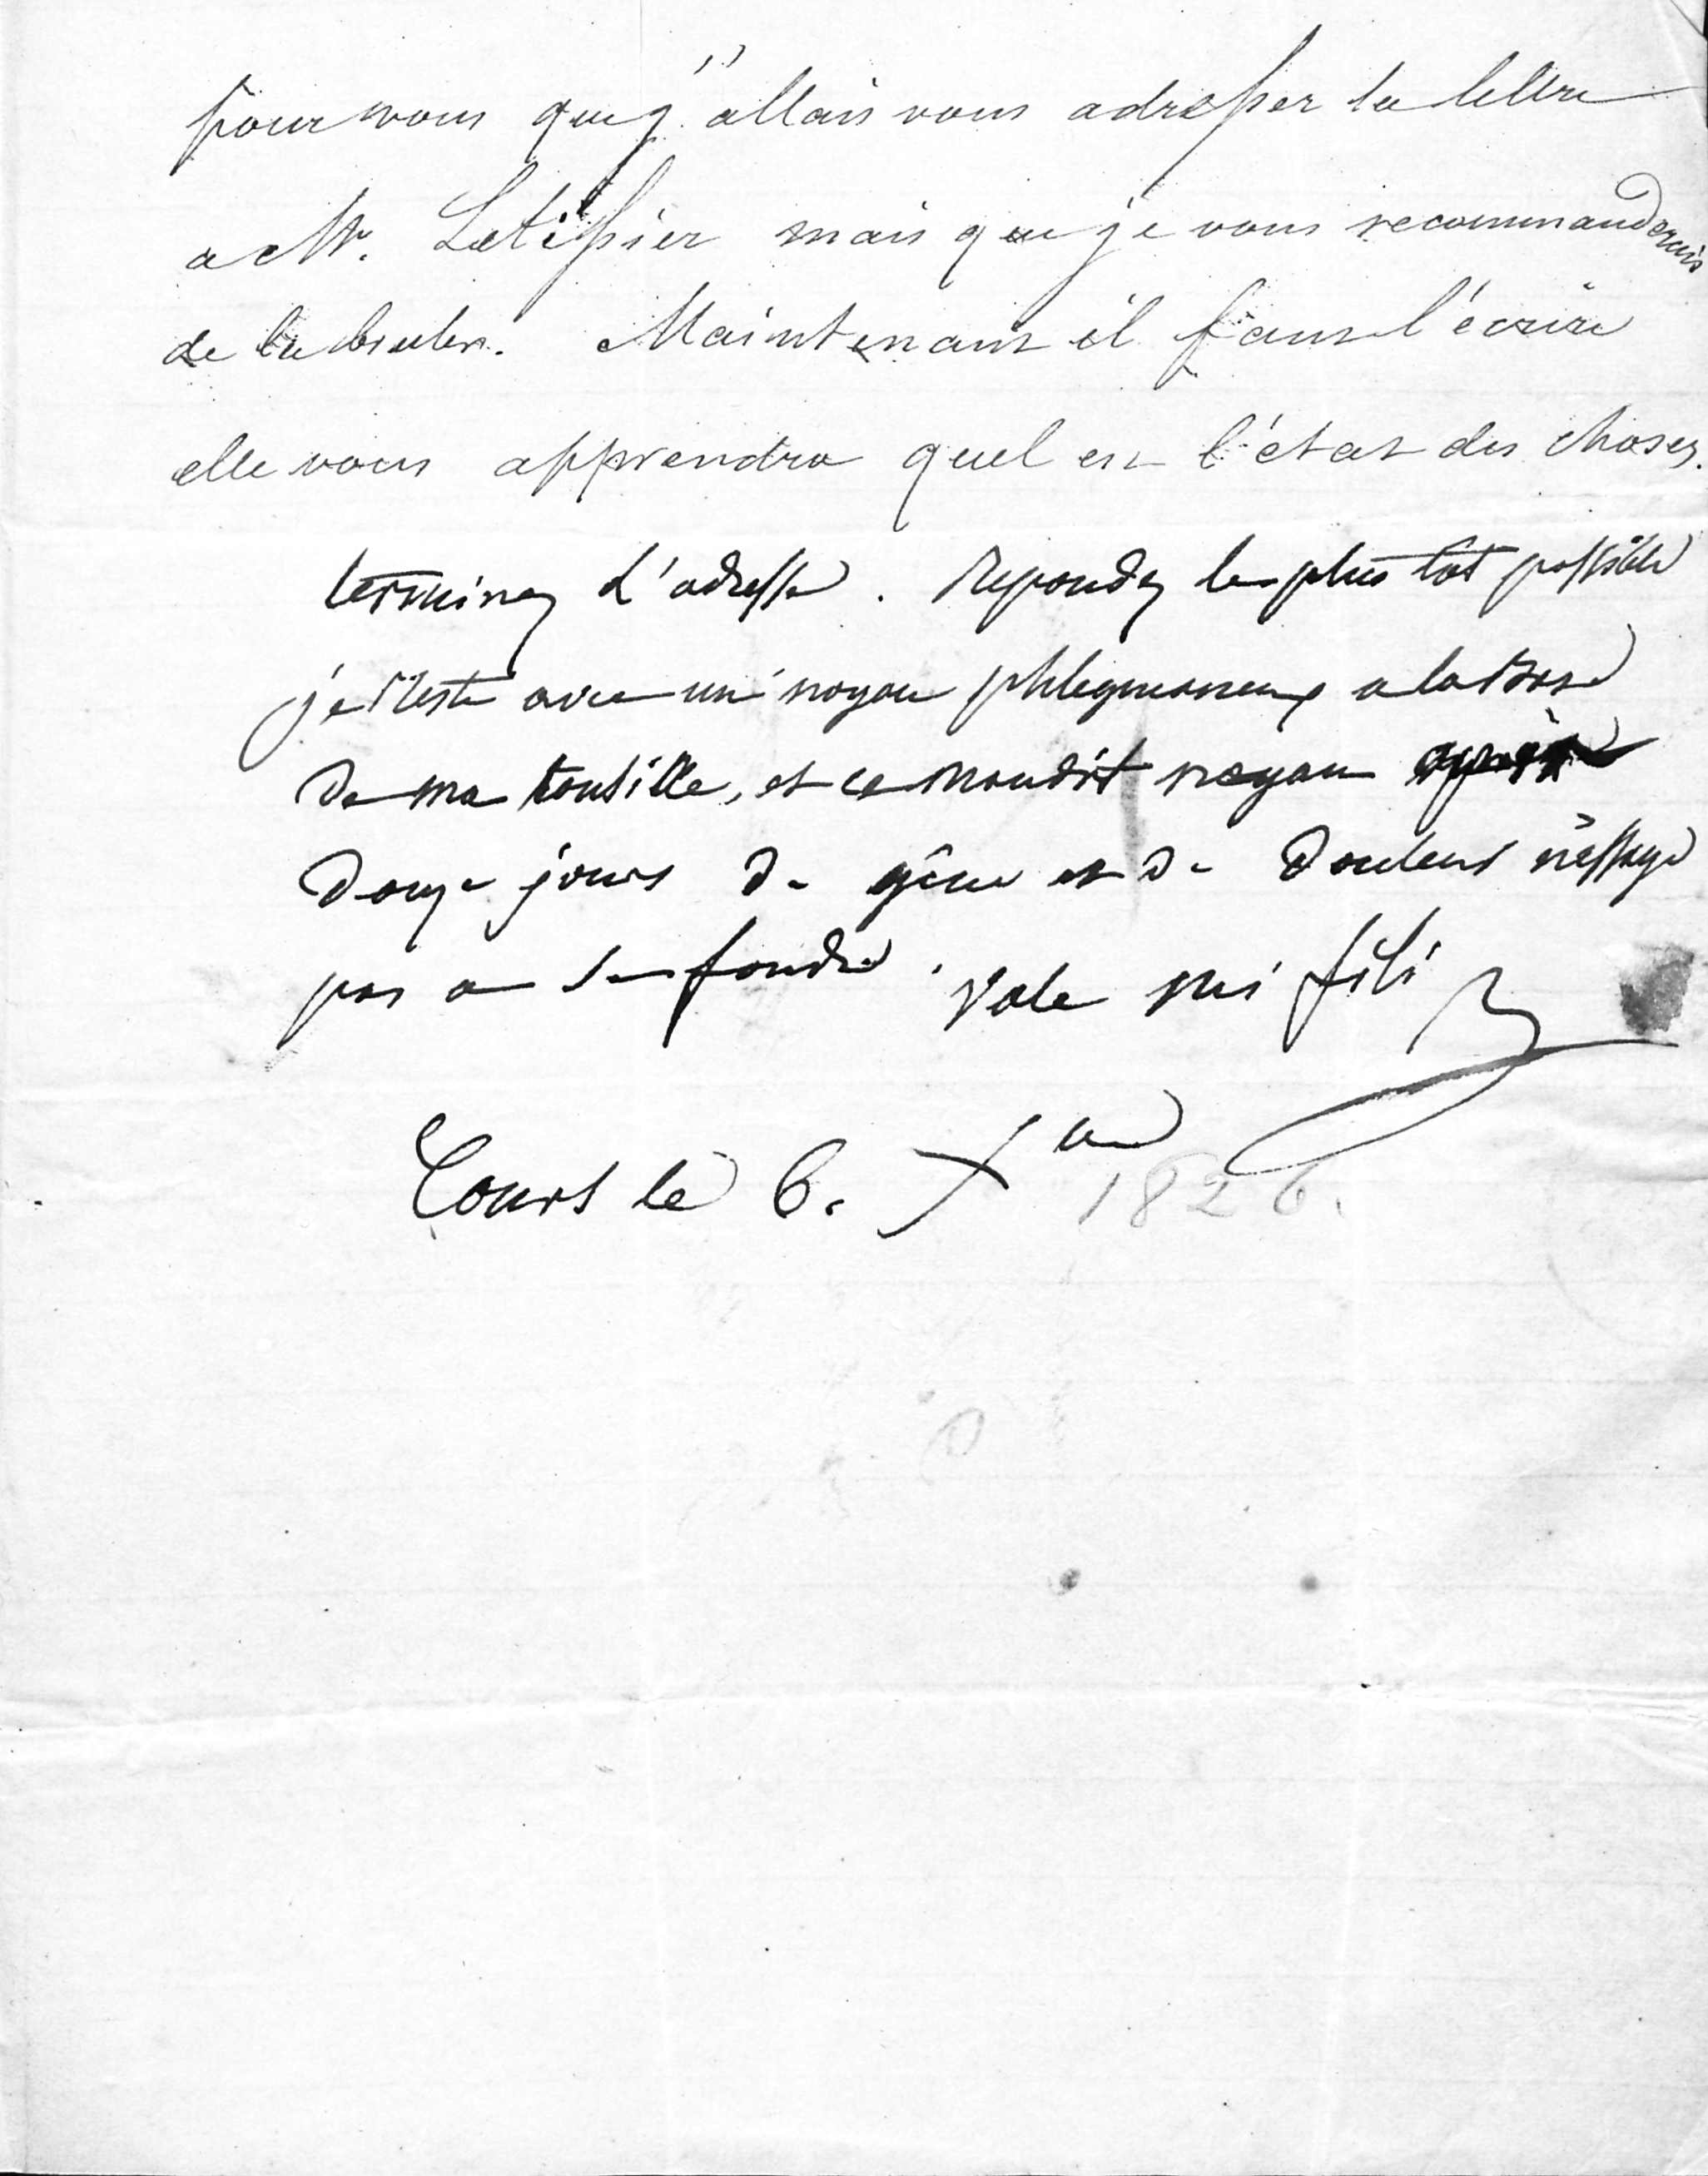 pour vous que j'allais vous adresser la lettre
a Mr. Letissier mais que je vous recommanderais
de la bruler. Maintenant il faut l'écrire
elle vous apprendra quel est l'état des choses.
terminez l'adresse. Repondez le plus tôt possible
je reste avec un noyau phlegmoneux a la base
de ma tonsille, et ce maudit noyau après
douze jours de gêne et de douleurs n'essaye
pas a se fondre. Vale mi fili
Tours le 6. Xbre 1826.